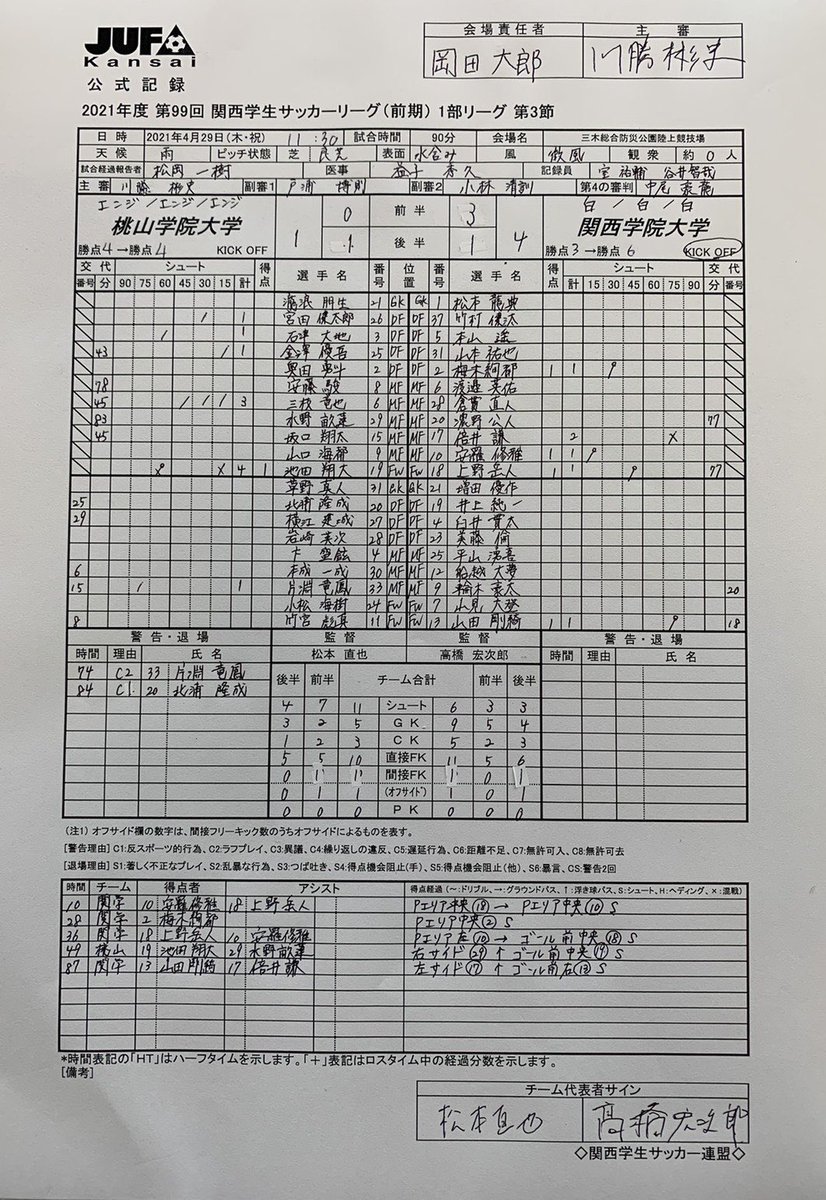 会場責任者 主審
岡田 大郎 川勝 彬史
JUFA
Kansai
公式記録
2021年度 第99回 関西学生サッカーリーグ(前期) 1部リーグ 第3節
日時 2021年4月29日(木・祝) 11:30 試合時間 90分 会場名 三木総合防災公園陸上競技場
天候 雨 ピッチ状態 芝 良芝 表面 水含み 風 微風 観衆 約0人
試合経過報告者 松岡 一樹 医事 益子 秀久 記録員 室祐輔
主審 川勝 彬史 副審1 戸浦 博則 副審2 小林 清訓 第4の審判 中尾
エンジ/エンジ/エンジ 0 前半 3 白/白/白
桃山学院大学 1 1 後半 1 4 関西学院大学
勝点4→勝点4 KICK OFF 勝点3→勝点6 KICK OFF
交代 シュート 得点 選手名 番号 位置 番号 選手名 得点 シュート 交代
番号 分 90 75 60 45 30 15 計 計 15 30 45 60 75 90 分 番号
朋生 21 GK GK 1 松本 龍典
/ 1 宮田 健太郎 26 DF DF 37 竹村 健汰
/ 1 石澤 大地 3 DF DF 5 本山 遥
43 / 1 金澤 優吾 25 DF DF 31 山本 祐也
奥田 勇斗 2 DF DF 2 梅木絢都 1 1 9
78 安藤 駿 8 MF MF 6 渡邉 英佑
45 / / / 3 三枝 竜也 6 MF MF 28 倉貫 直人
83 水野 畝蓮 29 MF MF 20 濃野 公人 77
45 坂口 翔太 15 MF MF 17 倍井 謙 2 ×
山口 海都 9 MF MF 10 安羅 修雅 1 1 9
× 4 1 池田 翔大 19 FW FW 18 上野 岳人 1 1 9 77
草野 真人 31 GK GK 21 増田 優作
25 北浦 隆成 20 DF DF 19 井上 純一
29 横江 建城 27 DF DF 4 臼井 貫太
岩崎 英次 28 DF DF 23 美藤 倫
卞 4 MF MF 25 平山 湧喜
6 本成 一成 30 MF MF 12 船越 大夢
15 / 1 片淵 竜鳳 33 MF MF 9 輪木 豪太 20
小松 海樹 24 FW FW 7 山見 大登
8 竹宮 11 FW FW 13 山田 剛綺 1 1 9 18
警告・退場 監督 監督 警告・退場
時間 理由 氏名 松本 直也 高橋 宏次郎 時間 理由 氏名
74 C2 33 片淵 竜鳳 後半 前半 チーム合計 前半 後半
84 C1 20 北浦 隆成
4 7 11 シュート 6 3 3
3 2 5 GK 9 5 4
1 2 3 CK 5 2 3
5 5 10 直接FK 11 5 6
0 1 1 間接FK 1 0 1
0 1 1 (オフサイド) 1 0 1
0 0 0 PK 0 0 0
(注1) オフサイド欄の数字は、間接フリーキック数のうちオフサイドによるものを表す。
[警告理由] C1:反スポーツ的行為、C2:ラフプレイ、C3:異議、C4:繰り返しの違反、C5:遅延行為、C6:距離不足、C7:無許可入、C8:無許可去
[退場理由] S1:著しく不正なプレイ、S2:乱暴な行為、S3:つば吐き、S4:得点機会阻止(手)、S5:得点機会阻止(他)、S6:暴言、CS:警告2回
時間 チーム 得点者 アシスト 得点経過(~:ドリブル、→:グラウンドパス、↑:浮き球パス、S:シュート、H:ヘディング、×:混戦)
10 関学 10 安羅修雅 18 上野岳人 Pエリア中央⑱→Pエリア中央⑩S
28 関学 2 梅木絢都 Pエリア中央②S
36 関学 18 上野岳人 10 安羅修雅 Pエリア左⑩→ゴール前中央⑱S
49 桃山 19 池田翔大 29 水野畝蓮 右サイド㉙↑ゴール前中央⑲S
87 関学 13 山田剛綺 17 倍井謙 左サイド⑰↑ゴール前右⑬S
*時間表記の「HT」はハーフタイムを示します。「+」表記はロスタイム中の経過分数を示します。
[備考]
チーム代表者サイン
松本直也 高橋宏次郎
◇関西学生サッカー連盟◇